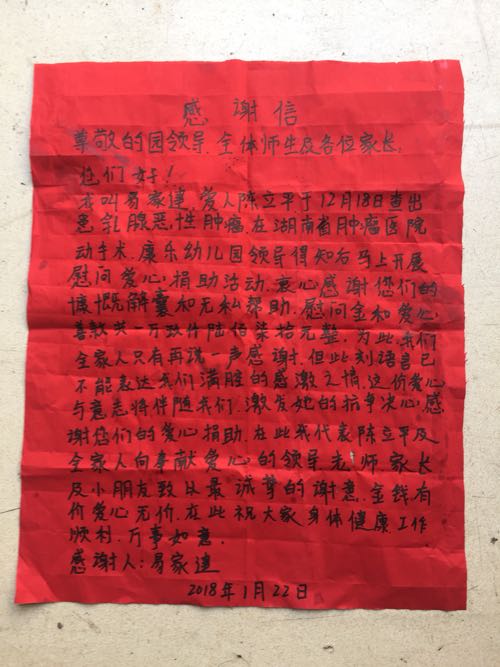 感谢信
尊敬的园领导、全体师生及各位家长,
您们好!
我叫易家建,爱人陈立平于12月18日查出
患乳腺恶性肿瘤,在湖南省肿瘤医院
动手术,康乐幼儿园领导得知后马上开展
慰问爱心捐助活动,衷心感谢您们的
慷慨解囊和无私帮助,慰问金和爱心
善款共一万玖仟陆佰柒拾元整,为此,我们
全家人只有再说一声感谢,但此刻语言已
不能表达我们满腔的感激之情,这份爱心
与意志将伴随我们,激发她的抗争决心,感
谢您们的爱心捐助,在此我代表陈立平及
全家人向奉献爱心的领导老师、家长
及小朋友致以最诚挚的谢意,金钱有
价爱心无价,在此祝大家身体健康工作
顺利,万事如意.
感谢人:易家建
2018年1月22日